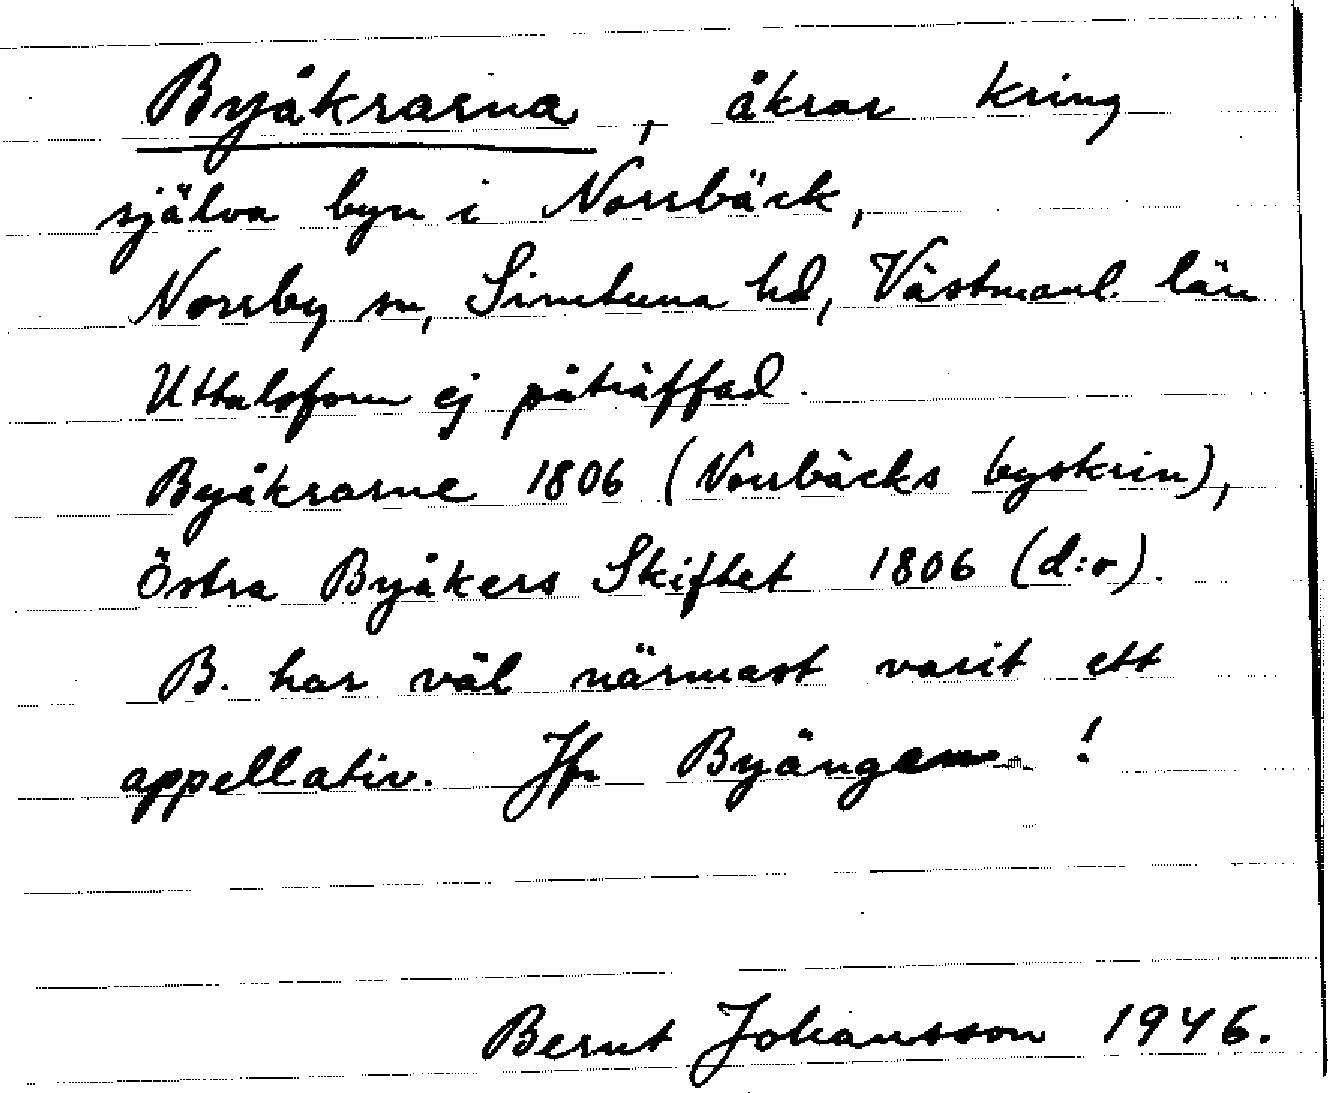 Byåkrarna, åkrar kring
själva byn i Norrbäck,
Norrby sn, Simtuna hd, Västmanl. län
Uttalsform ej påträffad.
Byåkrarne 1806 (Norrbäcks byskrin),
Östra Byåkers Skiftet 1806 (d:o).
B. har väl närmast varit ett
appellativ. Jfr !
Bernt Johansson 1946.